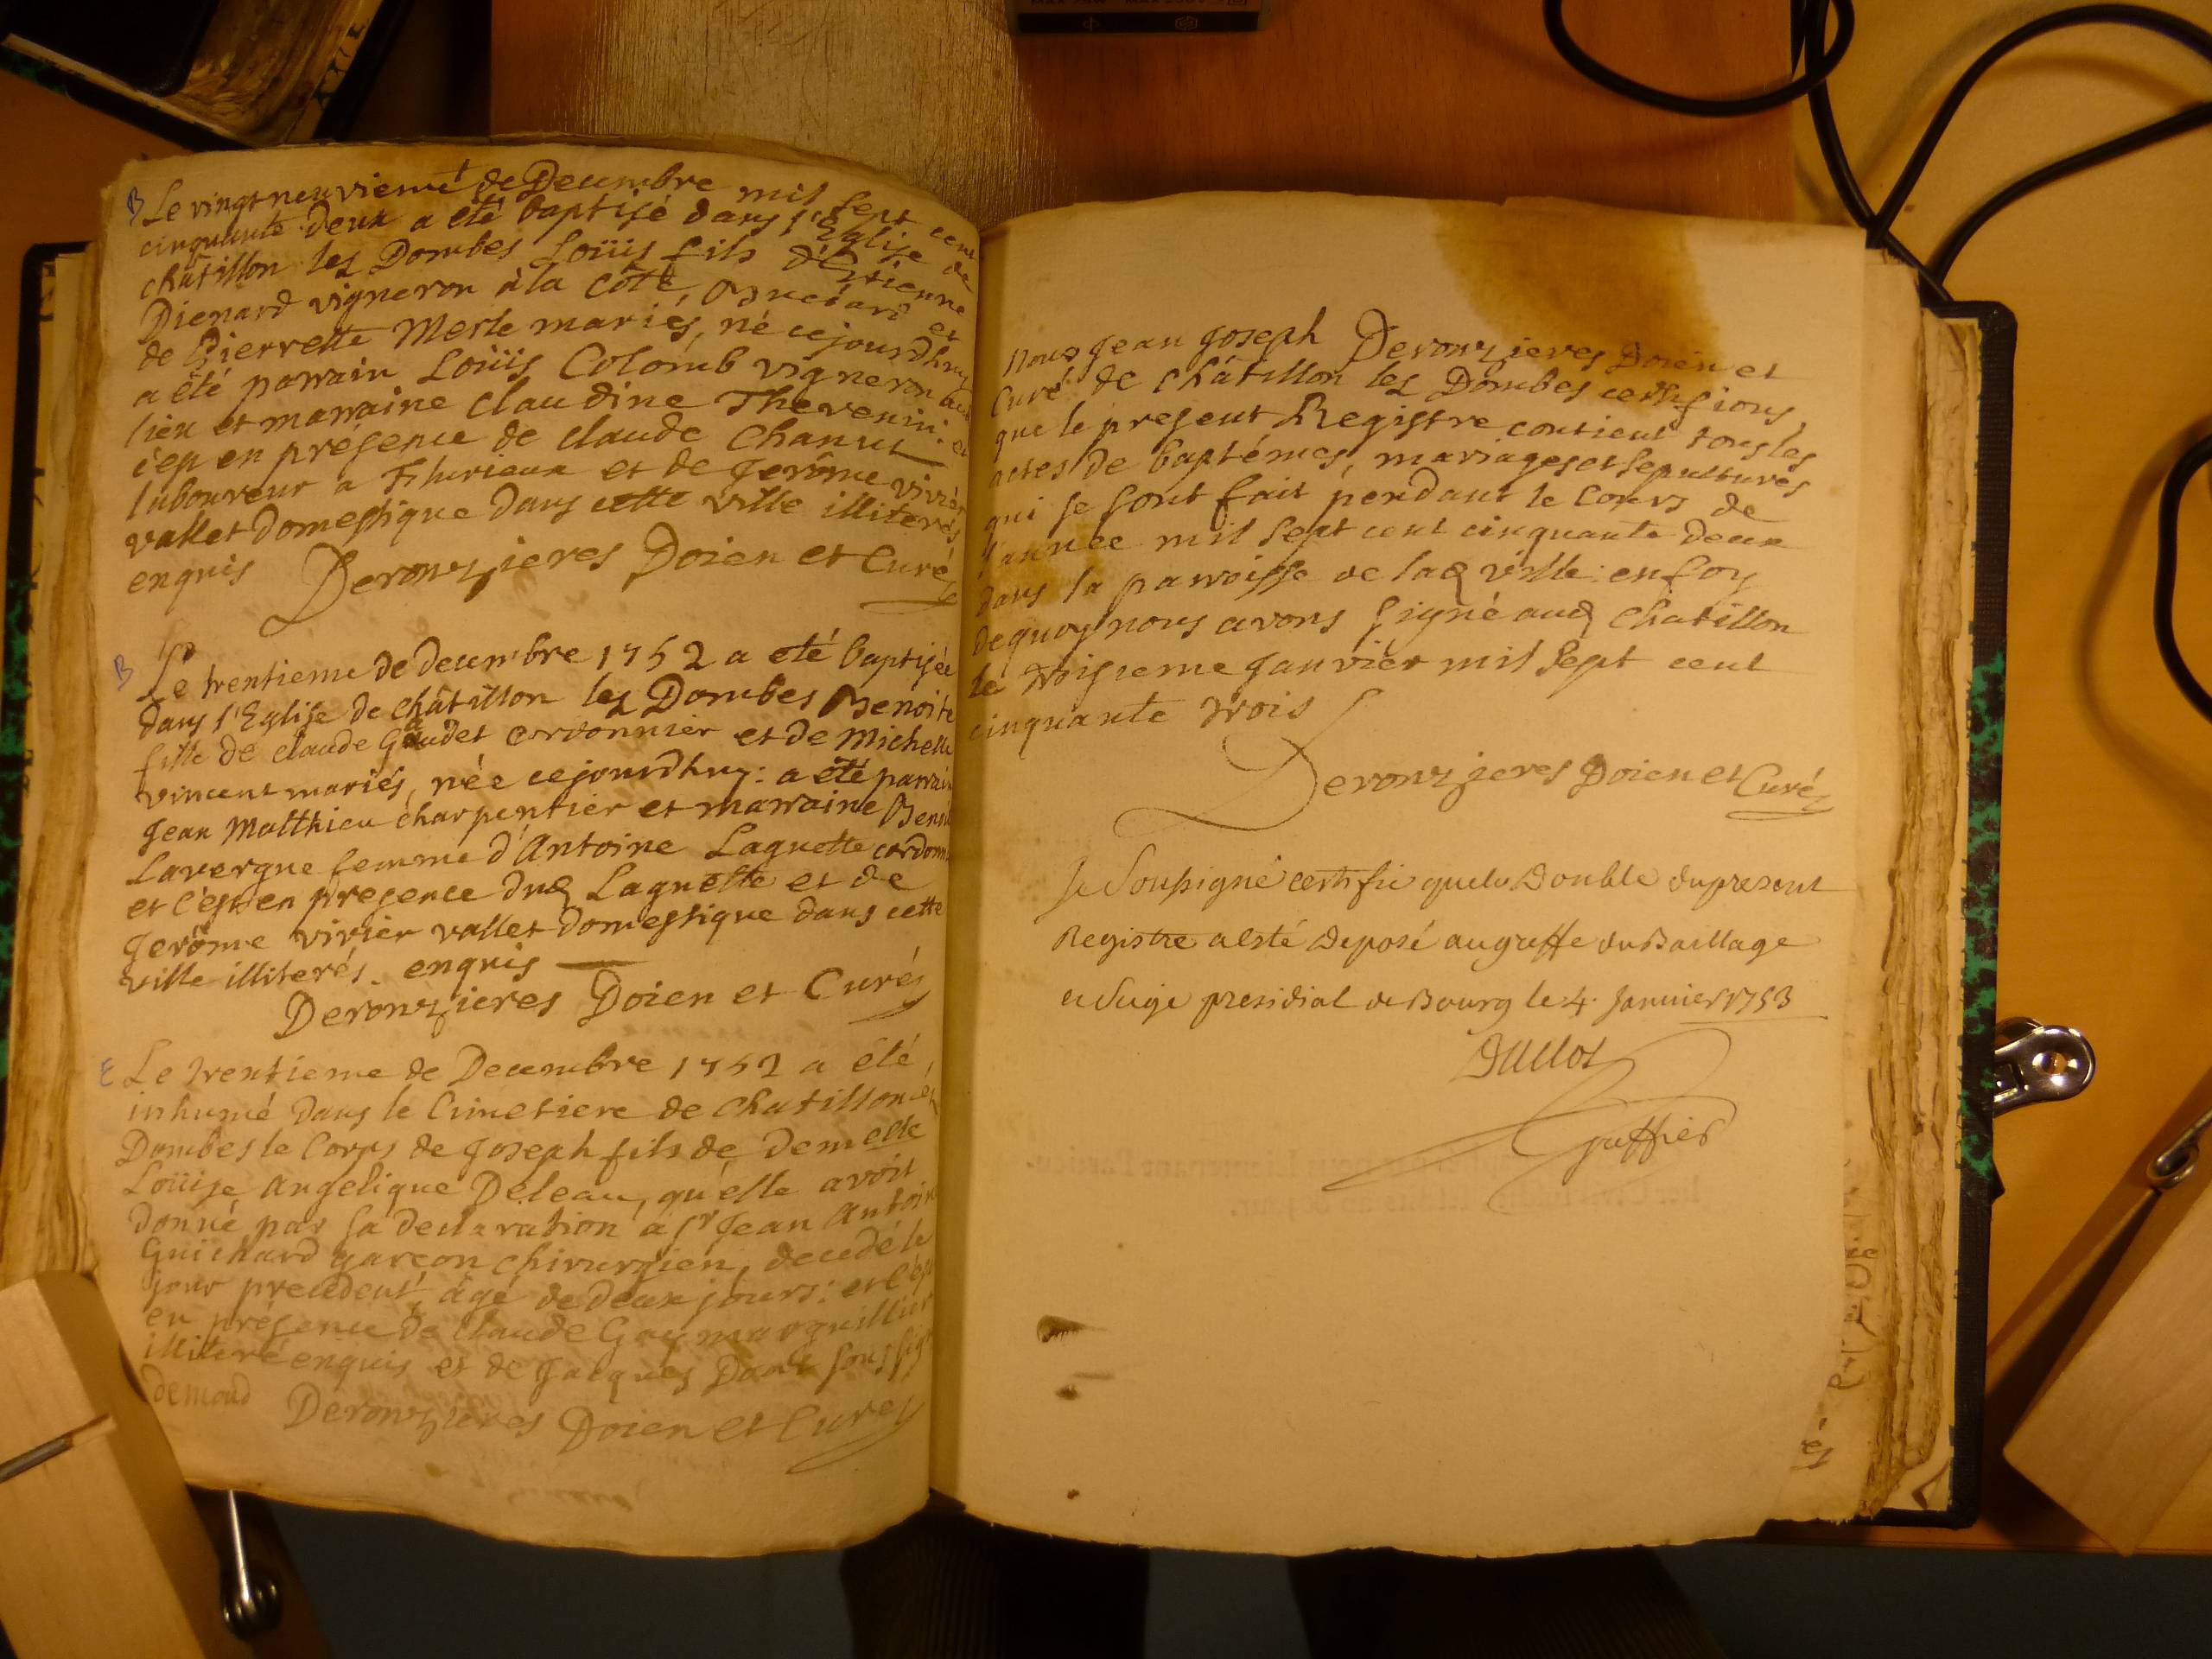 B Le vingt neuvieme de Decembre mil sept cent
cinquante deux a eté baptisé dans l'Eglise de
châtillon les Dombes Loüis fils d'Estienne
Dienard vigneron à la côte, et
de Pierrette Merle mariés, né cejourdhuy
a été parrain Loüis Colomb vigneron
lieu et marraine claudine Thevenin: et
c'est en présence de claude Chanut
laboureur a Flurieux et de Jerôme vivier
vallet domestique dans cette ville illiterés
enquis Deronzieres Doien et Curé
B Le trentieme de decembre 1752 a eté baptisée
dans l'Eglise de châtillon les Dombes Benoite
fille de claude Gaudet cordonnier et de Michelle
vincent mariés, née cejourdhuy: a été parrain
Jean Matthieu charpentier et marraine
Lavergne femme d'Antoine Laguette cordonn
et c'est en presence dud Laguette et de
Jerôme vivier vallet domestique dans cette
ville illiterés. enquis
Deronzieres Doien et Curé
E Le trentieme de Decembre 1752 a été
inhumé dans le Cimetiere de Chatillon
Dombes le Corps de Joseph fils de demelle
Loüise Angelique Deleau, qu'elle avoit
donné par sa declaration à sr Jean Antoine
Guichard garcon chirurgien, decedé le
jour precedent, âgé de deux jours: et c'est
en présence de claude Gay marguillier
illiteré enquis et de Jacques
demond Deronzieres Doien et Curé
Nous Jean Joseph Deronzieres Doien et
Curé de Châtillon les Dombes certifions
que le present Registre contient tous les
actes de baptémes, mariages et sepultures
qui se sont fait pendant le Cours de
l'année mil sept cent cinquante deux
dans la parroisse de lad ville: en foy
dequoy nous avons signé aud Chatillon
le troisieme Janvier mil sept cent
cinquante trois
Deronzieres Doien et Curé
Je Soussigné certifie quele Double dupresent
Registre a esté Deposé augreffe du Baillage
et Siege presidial de Bourg le 4 Janvier 1753
greffier